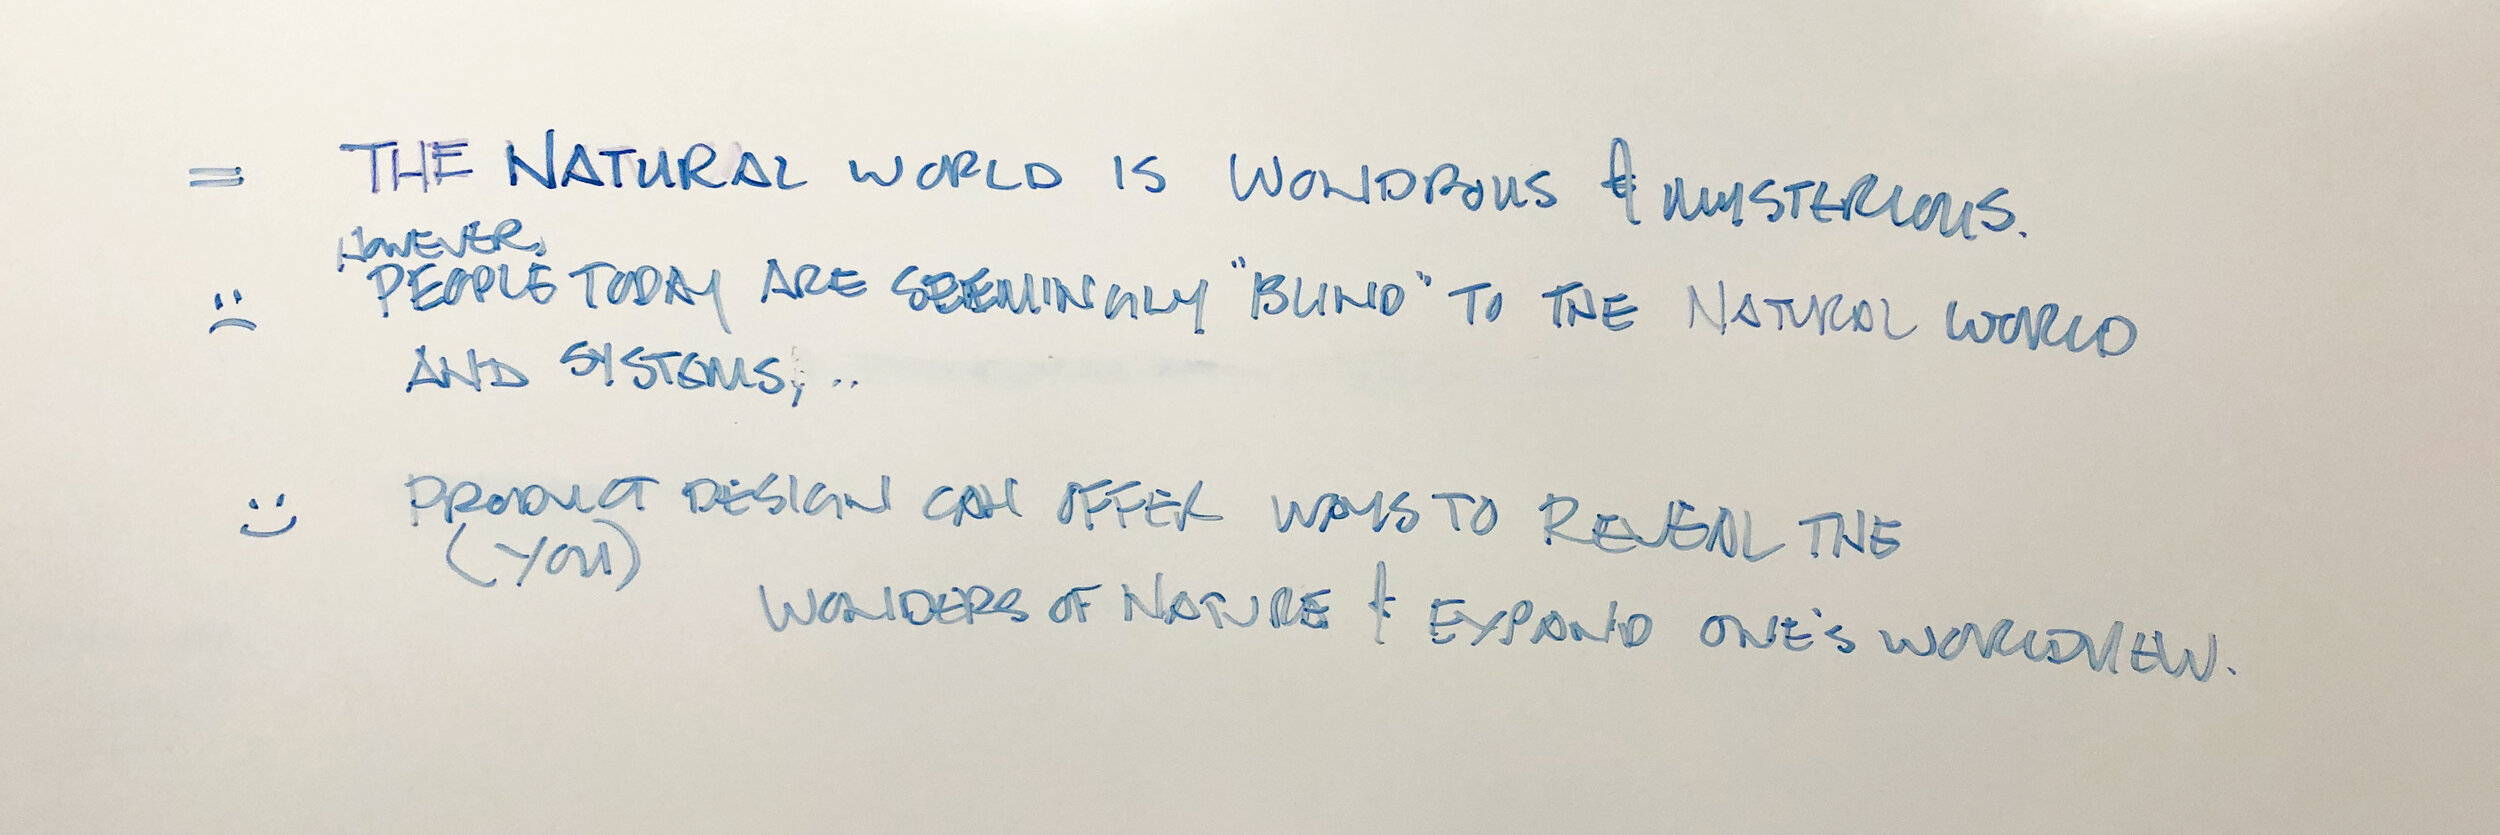 = THE NATURAL WORLD IS WONDROUS & MYSTERIOUS.
HOWEVER,
:( PEOPLE TODAY ARE SEEMINGLY "BLIND" TO THE NATURAL WORLD
AND SYSTEMS, ..
:) PRODUCT DESIGN CAN OFFER WAYS TO REVEAL THE
(YOU)
WONDERS OF NATURE & EXPAND ONE'S WORLDVIEW.